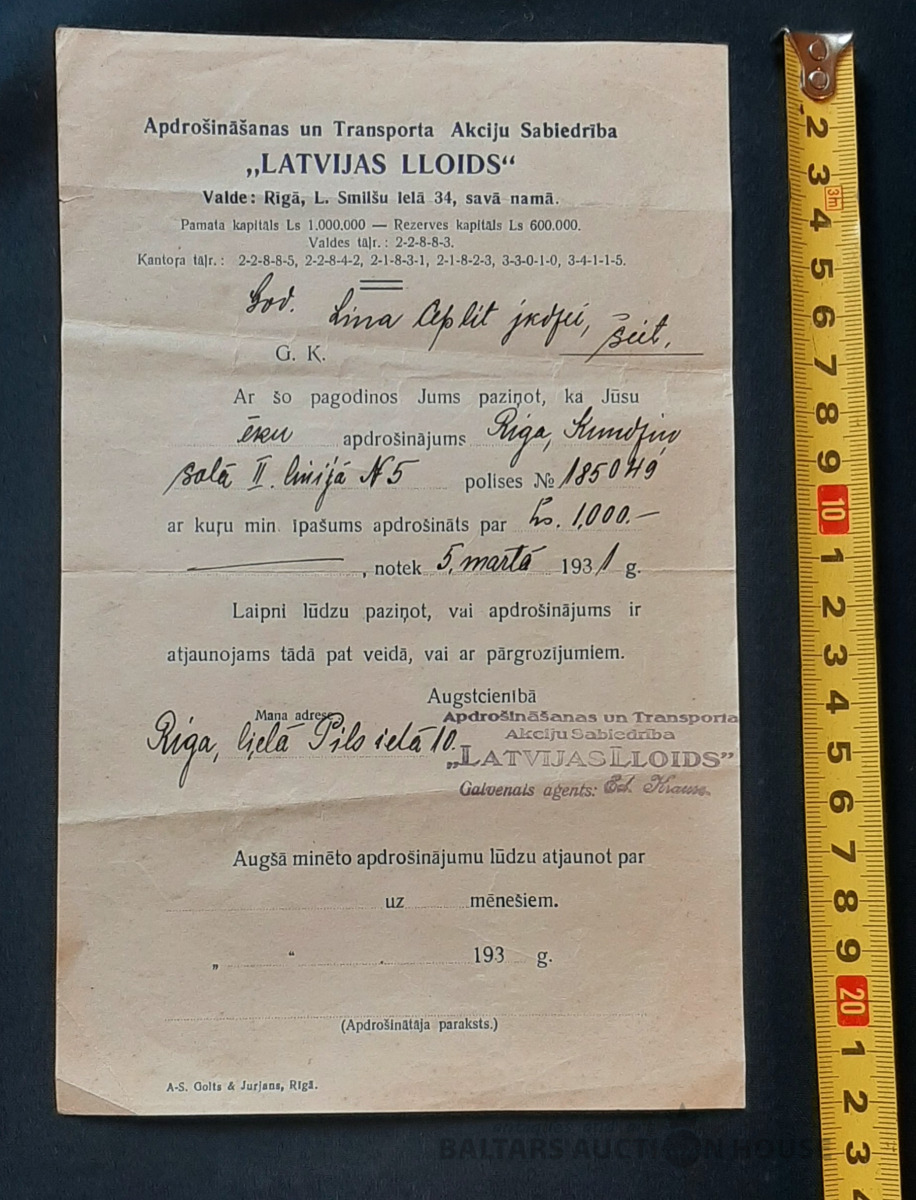 Apdrošināšanas un Transporta Akciju Sabiedrība
„LATVIJAS LLOIDS“
Valde: Rīgā, L. Smilšu ielā 34, savā namā.
Pamata kapitāls Ls 1.000.000 — Rezerves kapitāls Ls 600.000.
Valdes tāļr.: 2-2-8-8-3.
Kantoŗa tāļr.: 2-2-8-8-5, 2-2-8-4-2, 2-1-8-3-1, 2-1-8-2-3, 3-3-0-1-0, 3-4-1-1-5.
God. Lina Aplit jkdzei, šeit,
G. K.
Ar šo pagodinos Jums paziņot, ka Jūsu
ēku apdrošinājums Rīga, Kundziņ
salā II. linijā № 5 polises № 185049
ar kuŗu min. īpašums apdrošināts par Ls. 1,000.—
, notek 5. martā 1931 g.
Laipni lūdzu paziņot, vai apdrošinājums ir
atjaunojams tādā pat veidā, vai ar pārgrozījumiem.
Augstcienībā
Mana adrese
Rīga, lielā Pils ielā 10.
Apdrošināšanas un Transporta
Akciju Sabiedrība
„LATVIJAS LLOIDS”
Galvenais aģents: Ed. Krause.
Augšā minēto apdrošinājumu lūdzu atjaunot par
uz mēnešiem.
„ “ . 193 g.
(Apdrošinātāja paraksts.)
A-S. Golts & Jurjans, Rīgā.
BALTARS AUCTION HOUSE
2 3 3m 4 5 6 7 8 9 10 1 2 3 4 5 6 7 8 9 20 1 2 3 4